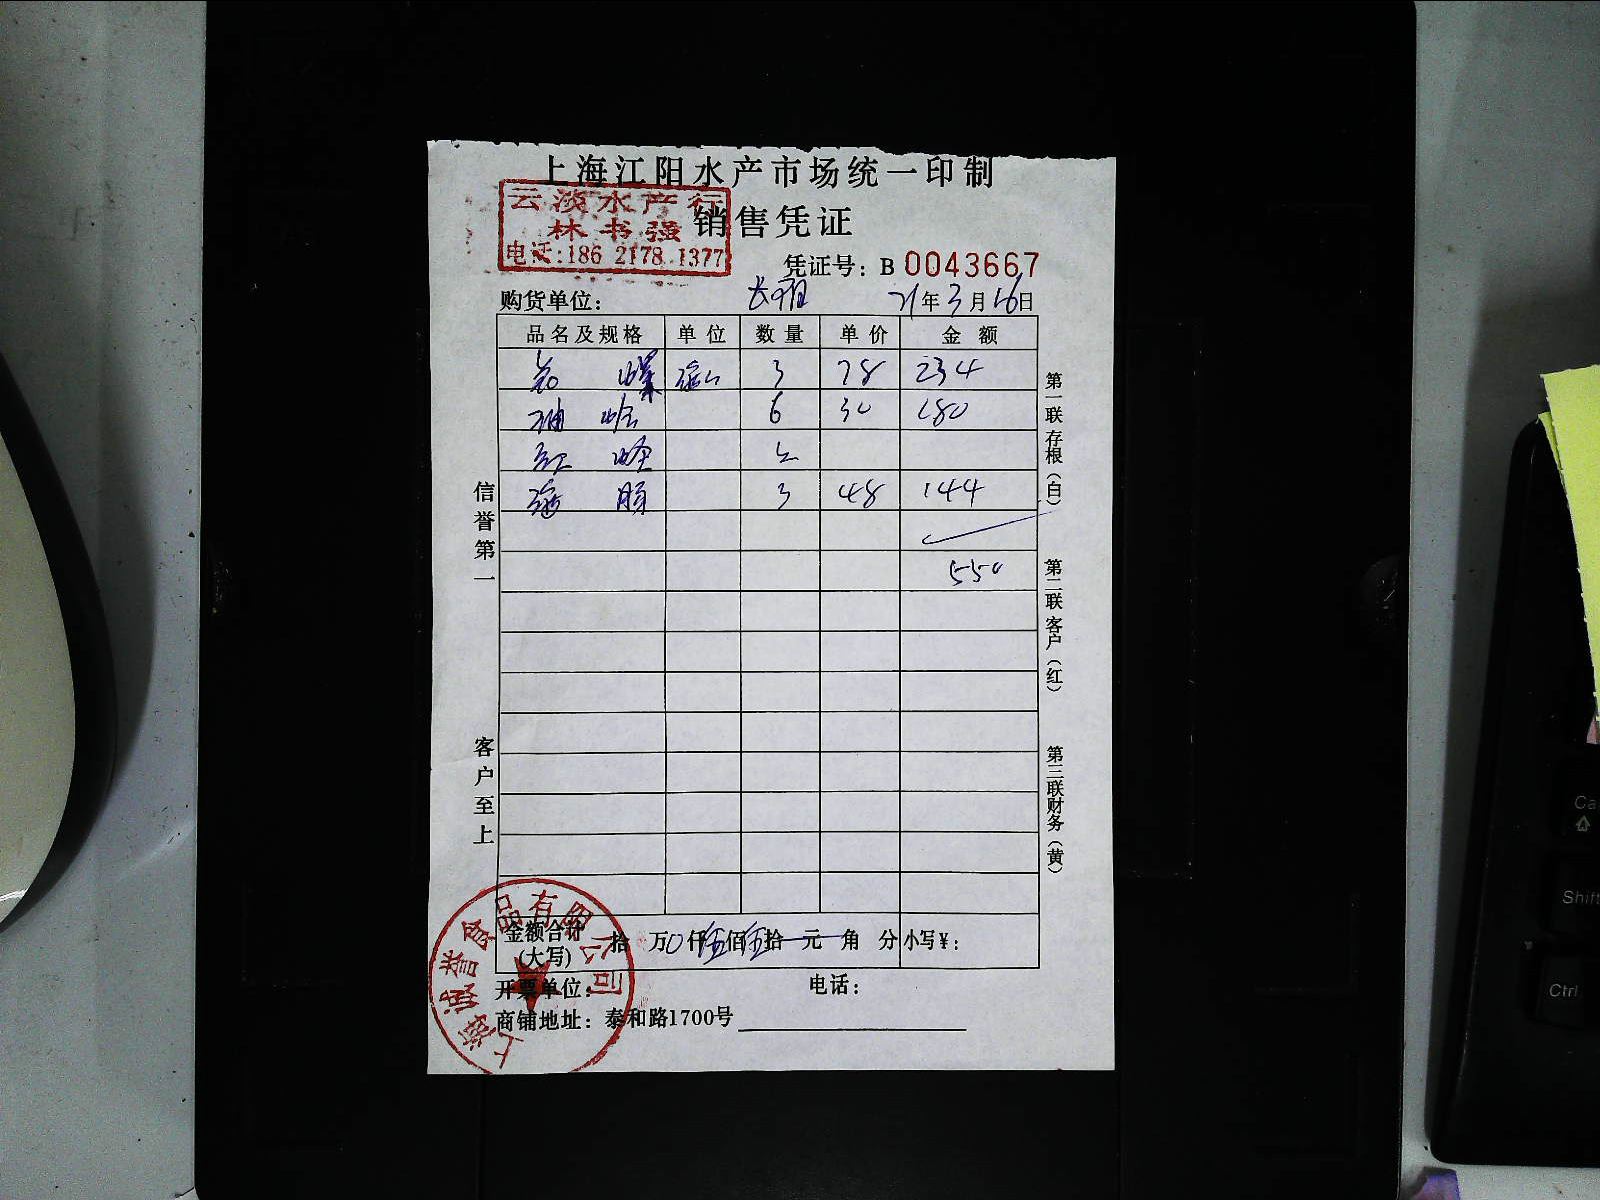 上海江阳水产市场统一印制
云淡水产行
林书强
电话:186 2178 1377
销售凭证
凭证号: B 0043667
购货单位:
21年3月16日
品名及规格 单位 数量 单价 金额
螺 3 78 234
蛤 6 30 180
红 蛏
海 肠 3 48 144
550
信誉第一
客户至上
第一联存根(白)
第二联客户(红)
第三联财务(黄)
金额合计(大写) 拾 万0仟伍佰伍拾 元 角 分 小写¥:
开票单位: 电话:
商铺地址: 泰和路1700号
上海诚誉食品有限公司
Shift
Ctrl